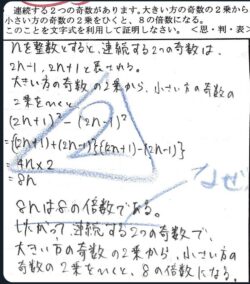 連続する2つの奇数があります。大きい方の奇数の2乗から
小さい方の奇数の2乗をひくと、8の倍数になる。
このことを文字式を利用して証明しなさい。<思・判・表>
nを整数とすると、連続する2つの奇数は、
2n-1, 2n+1と表される。
大きい方の奇数の2乗から、小さい方の奇数
の2乗をひくと
(2n+1)²-(2n-1)²
={(2n+1)+(2n-1)}{(2n+1)-(2n-1)}
=4n×2
=8n
なぜ
8nは8の倍数である。
したがって、連続する2つの奇数で、
大きい方の奇数の2乗から、小さい方の
奇数の2乗をひくと、8の倍数になる。
2